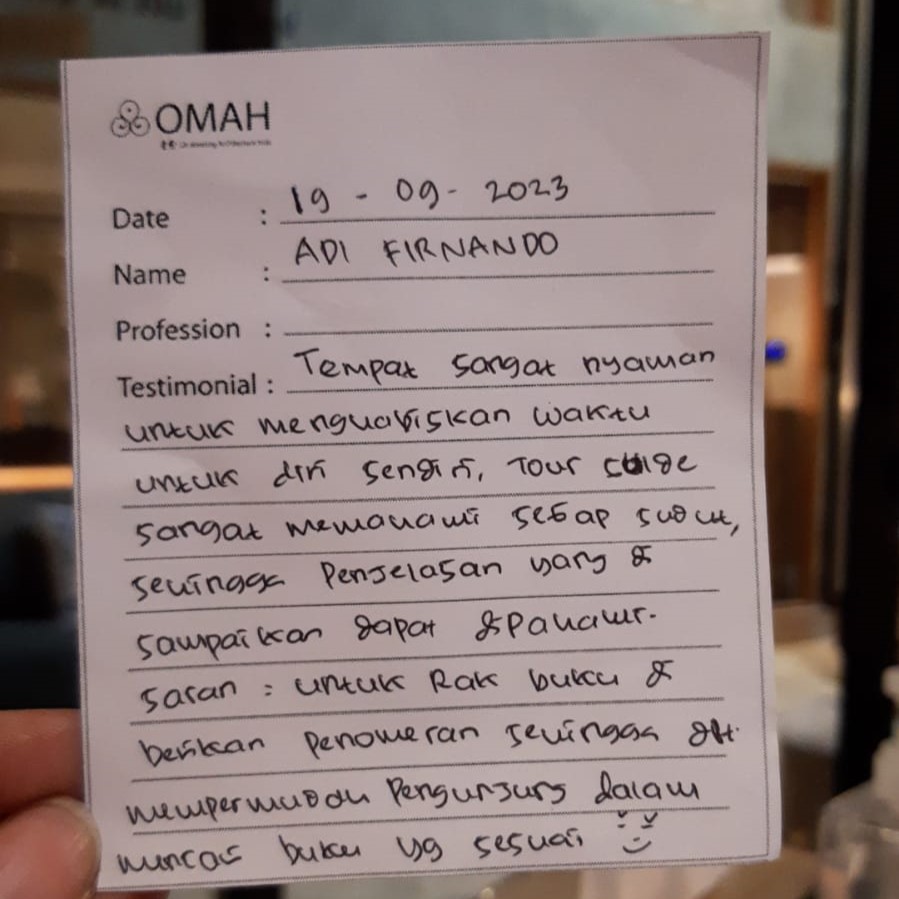 OMAH
Date : 19 - 09 - 2023
Name : ADI FIRNANDO
Profession :
Testimonial : Tempat sangat nyaman
untuk menghabiskan waktu
untuk diri sendiri, Tour guide
sangat memahami setiap sudut,
sehingga Penjelasan yang di
sampaikan dapat dipahami.
Saran : untuk Rak buku di
berikan penomeran sehingga dpt
mempermudah Pengunjung dalam
mencari buku yg sesuai